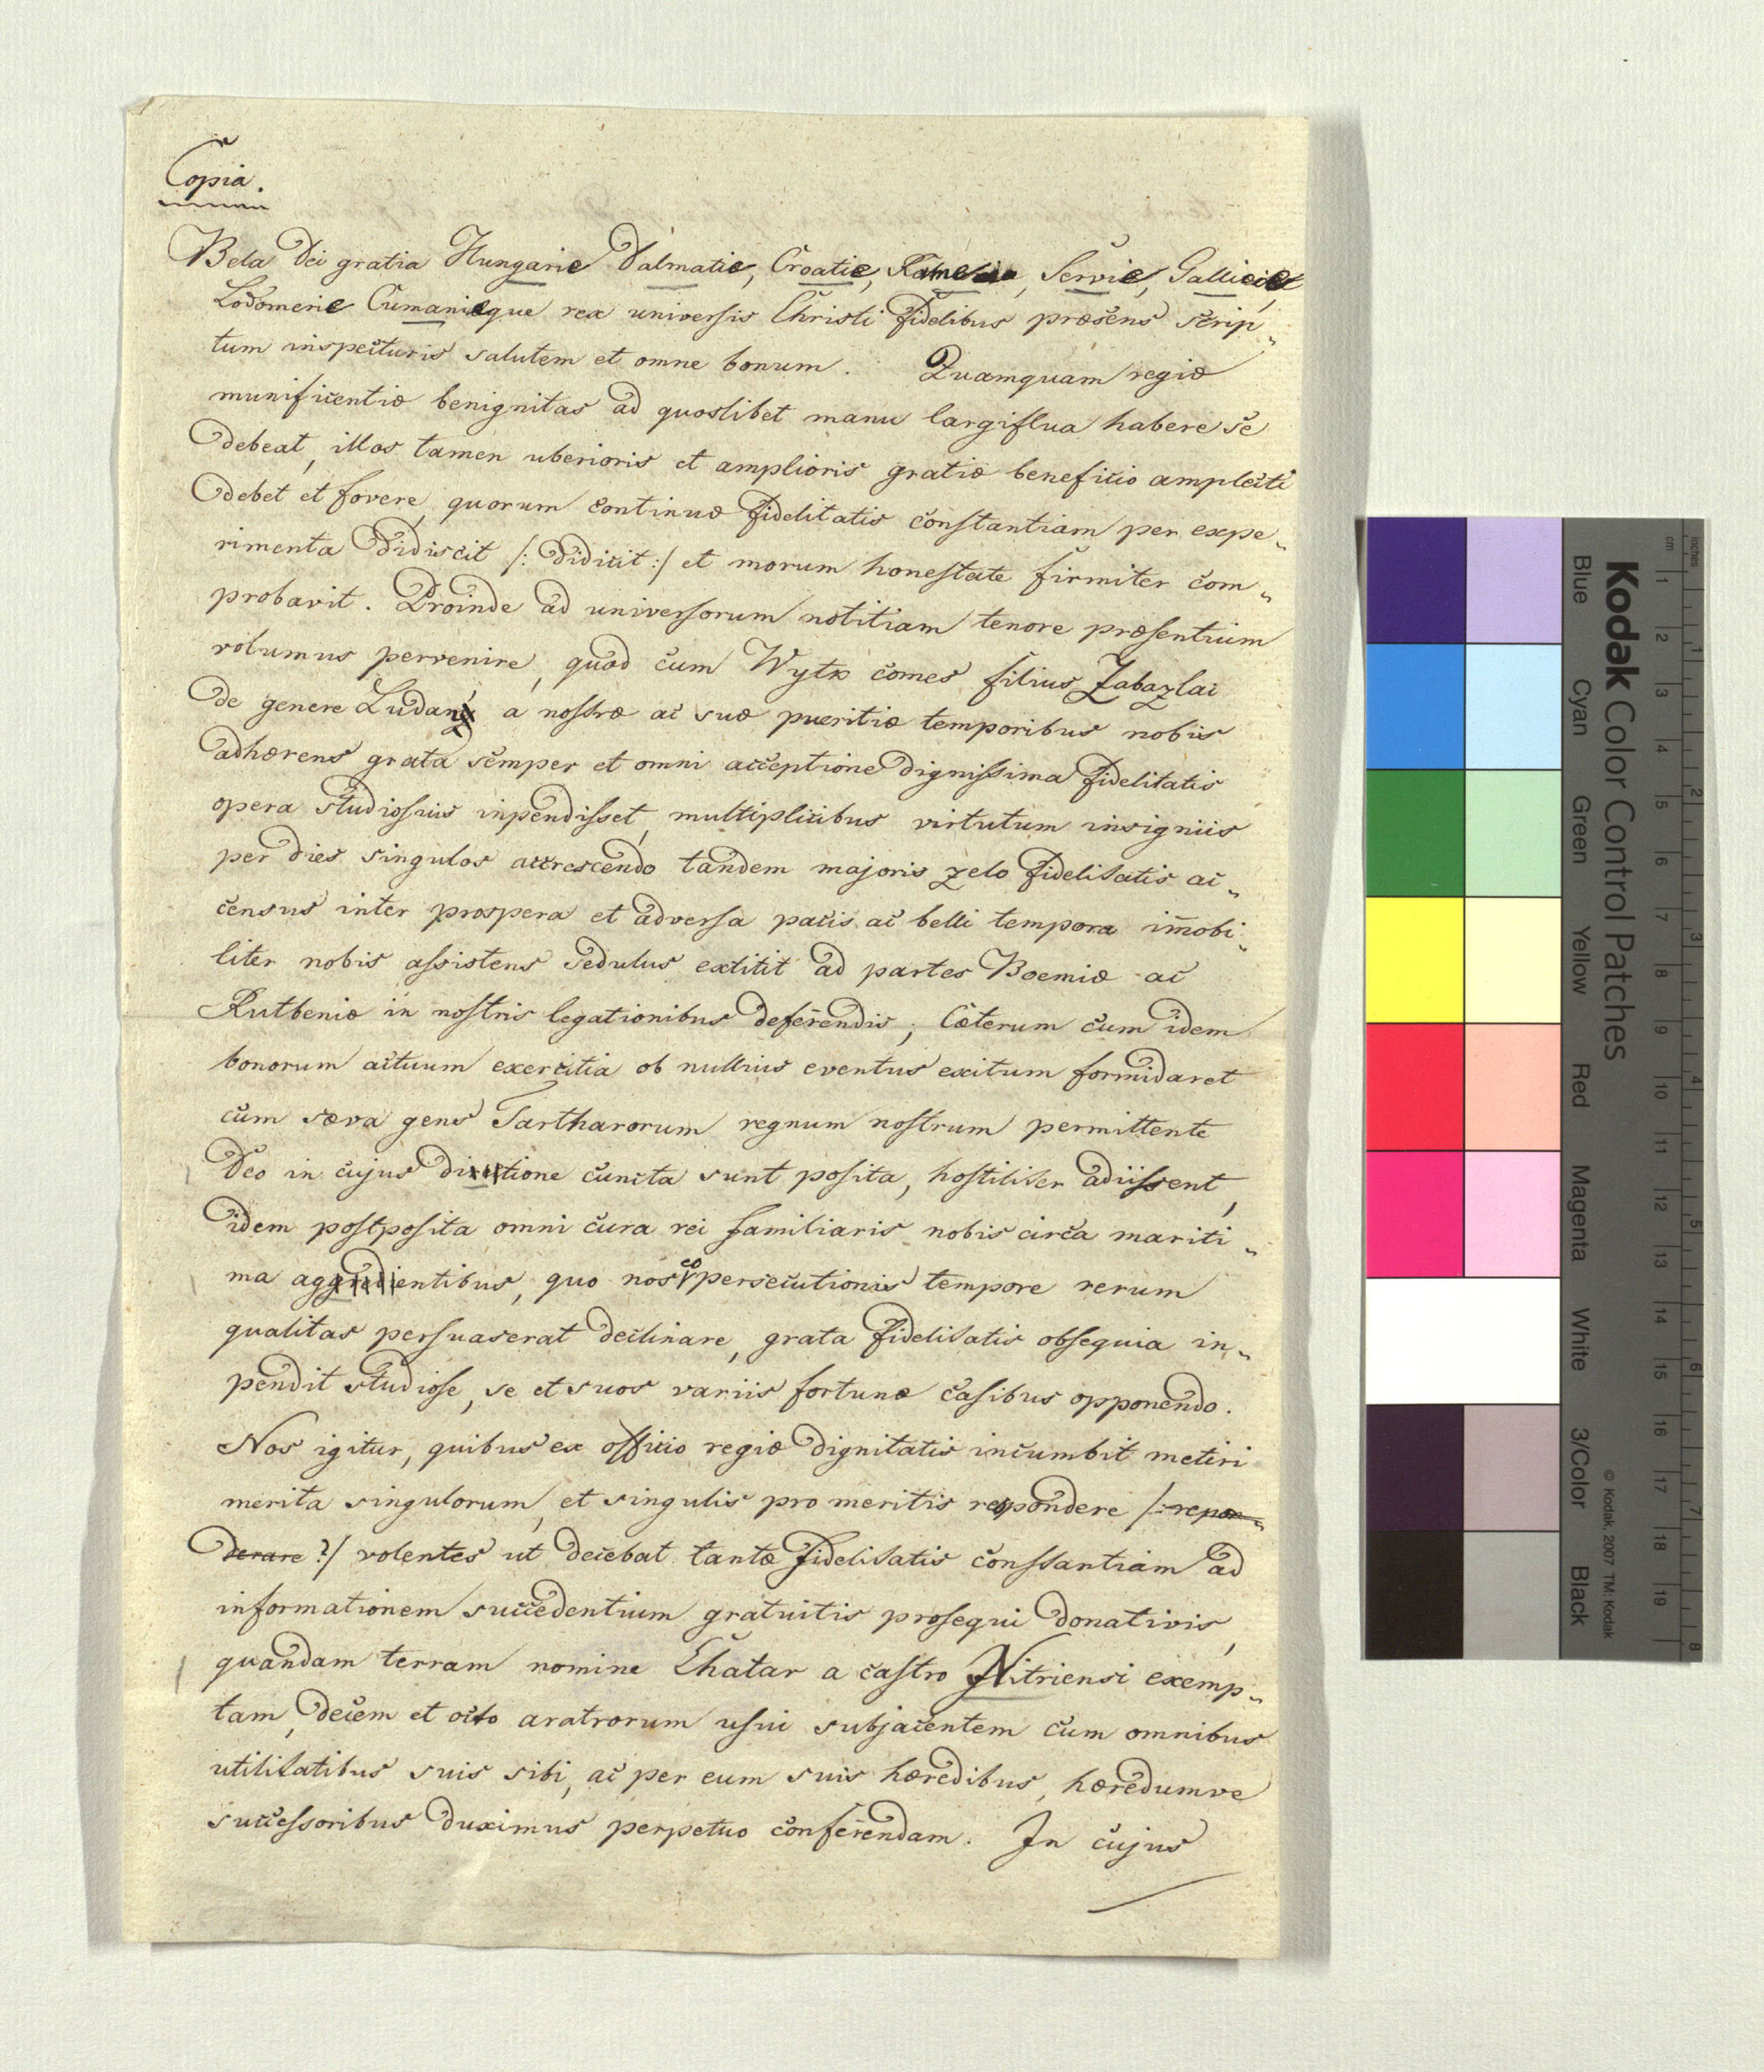 Copia.
Bela Dei gratia Hungarie Dalmatie, Croatie, Rame, Servie, Gallicie,
Lodomerie Cumanieque rex universis Christi fidelibus præsens scrip„
tum inspecturis salutem et omne bonum. Quamquam regiæ
munificentiæ benignitas ad quoslibet manu largiflua habere se
debeat, illos tamen uberioris et amplioris gratiæ beneficio amplecti
debet et fovere, quorum continuæ fidelitatis constantiam per expe„
rimenta didiscit /: didicit :/ et morum honestate firmiter com„
probavit. Proinde ad universorum notitiam tenore præsentium
volumus pervenire, quod cum Wytk comes filius Zabazlai
de genere Ludan a nostræ ac suæ pueritiæ temporibus nobis
adhærens grata semper et omni acceptione dignissima fidelitatis
opera studiosius inpendisset, multiplicibus virtutum insigniis
per dies singulos accrescendo tandem majoris zelo fidelitatis ac„
census inter prospera et adversa pacis ac belli tempora im̄obi„
liter nobis assistens sedulus extitit ad partes Boemiæ ac
Rutheniæ in nostris legationibus deferendis; Cæterum cum idem
bonorum actuum exercitia ob nullius eventus exitum formidaret
cum sæva gens Tartharorum regnum nostrum permittente
Deo in cujus ditione cuncta sunt posita, hostiliter adiissent,
idem postposita omni cura rei familiaris nobis circa mariti„
ma aggredientibus, quo nos eo persecutionis tempore rerum
qualitas persuaserat declinare, grata fidelitatis obsequia in„
pendit studiose, se et suos variis fortunæ casibus opponendo.
Nos igitur, quibus ex officio regiæ dignitatis incumbit metiri
merita singulorum, et singulis pro meritis respondere /: repon„
derare ?/ volentes ut decebat tantæ fidelitatis constantiam ad
informationem succedentium gratuitis prosequi donativis,
quandam terram nomine Chatar a castro Nitriensi exemp„
tam, decem et octo aratrorum usui subjacentem cum omnibus
utilitatibus suis sibi, ac per eum suis hæredibus, hæredumve
successoribus duximus perpetuo conferendam. In cujus
Kodak Color Control Patches
Blue
Cyan
Green
Yellow
Red
Magenta
White
3/Color
Black
© Kodak, 2007 TM: Kodak
inches
1 2 3 4 5 6 7 8
cm
1 2 3 4 5 6 7 8 9 10 11 12 13 14 15 16 17 18 19